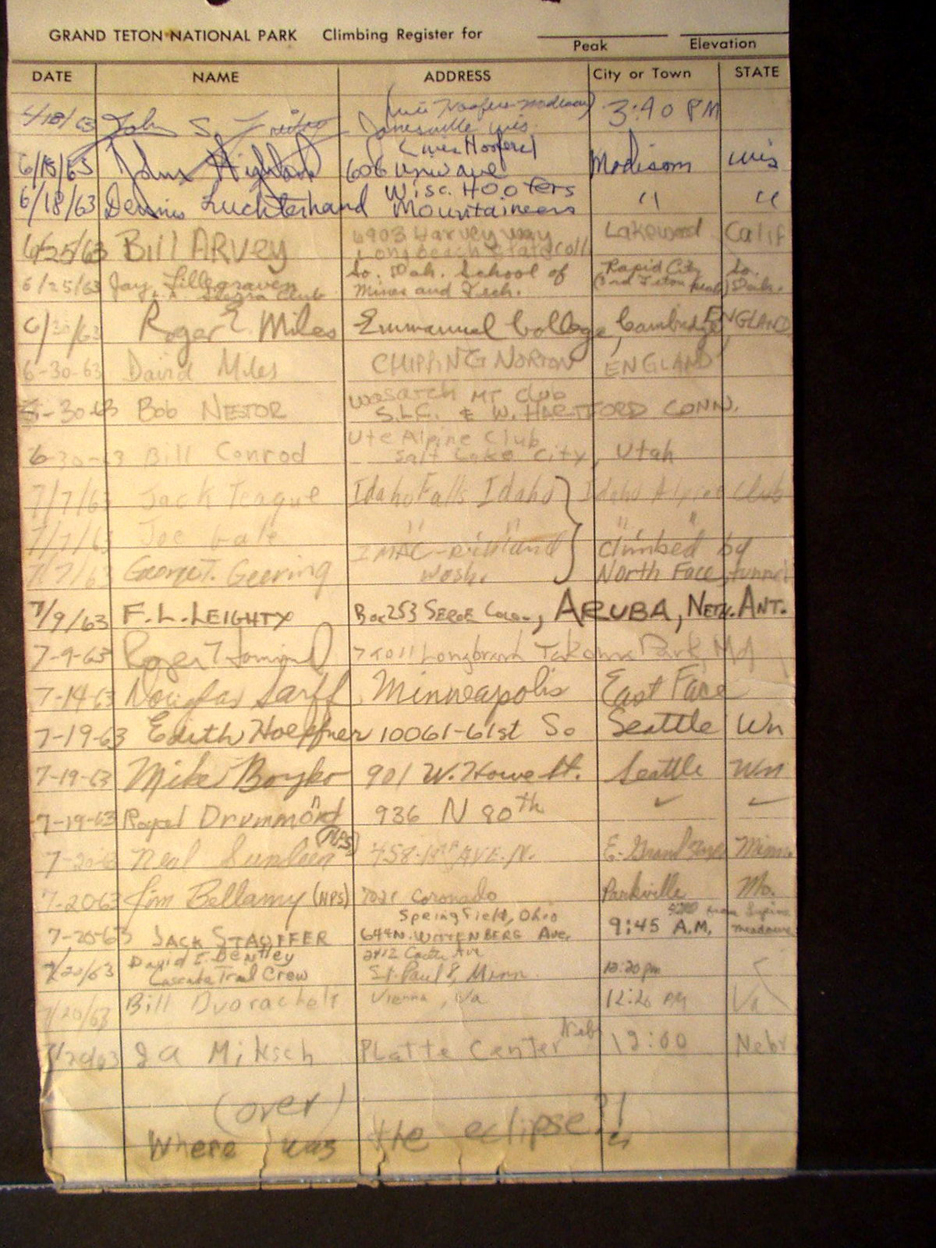 GRAND TETON NATIONAL PARK Climbing Register for
Peak Elevation
DATE NAME ADDRESS City or Town STATE
6/18/63 John S. Janesville, Wis. 3:40 PM
6/18/63 John Highland 606 Univ Ave (Wisc Hoofers) Madison Wis
6/18/63 Dennis Luchterhand Wisc. Hoofers Mountaineers " "
6/25/63 Bill ARVEY 6903 Harvey way Long beach State Coll Lakewood Calif
6/25/63 Jay Lillegraven Sierra Club So. Dak. School of Mines and Tech. Rapid City So. Dak.
6/30/63 Roger E. Miles Emmanuel College, Cambridge, ENGLAND
6-30-63 David Miles CHIPPING NORTON ENGLAND
6-30-63 Bob NESTOR Wasatch MT Club S.L.C. & W. HARTFORD CONN.
6-30-63 Bill Conrod Ute Alpine Club Salt Lake City, Utah
7/7/63 Jack Teague Idaho Falls Idaho } Idaho Alpine Club
7/7/63 Joe " " Climbed by
7/7/63 George T. Geering IMAC - Richland Wash. North Face, tunnel
7/9/63 F.L. LEIGHTY Box 253 SEROE COLO., ARUBA, NETH. ANT.
7-9-63 Roger Longbranch Takoma Park, Md
7-14-63 Douglas Sarff Minneapolis East Face
7-19-63 Edith Hoeffner 10061-61st So Seattle Wn
7-19-63 Mike Boyko 901 W. Howe St. Seattle Wn
7-19-63 Drummond 936 N 90th ✓ ✓
7-20-63 Neal (NPS) 458-14th AVE. N. E. Grand Minn.
7-20-63 Jim Bellamy (NPS) 7021 Coronado Parkville Mo.
7-20-63 JACK STAUFFER Springfield, Ohio 644 N. WITTENBERG Ave. 9:45 A.M. from meadows
7/20/63 David E. Bentley Cascade Trail Crew 2412 Ave St. Paul 8, Minn. 10:20 pm
7/20/63 Bill Dvorachek Vienna, Va 12:20 PM Va
7/20/63 J A Miksch Platte Center Neb 12:00 Nebr
(over)
Where was the eclipse?!